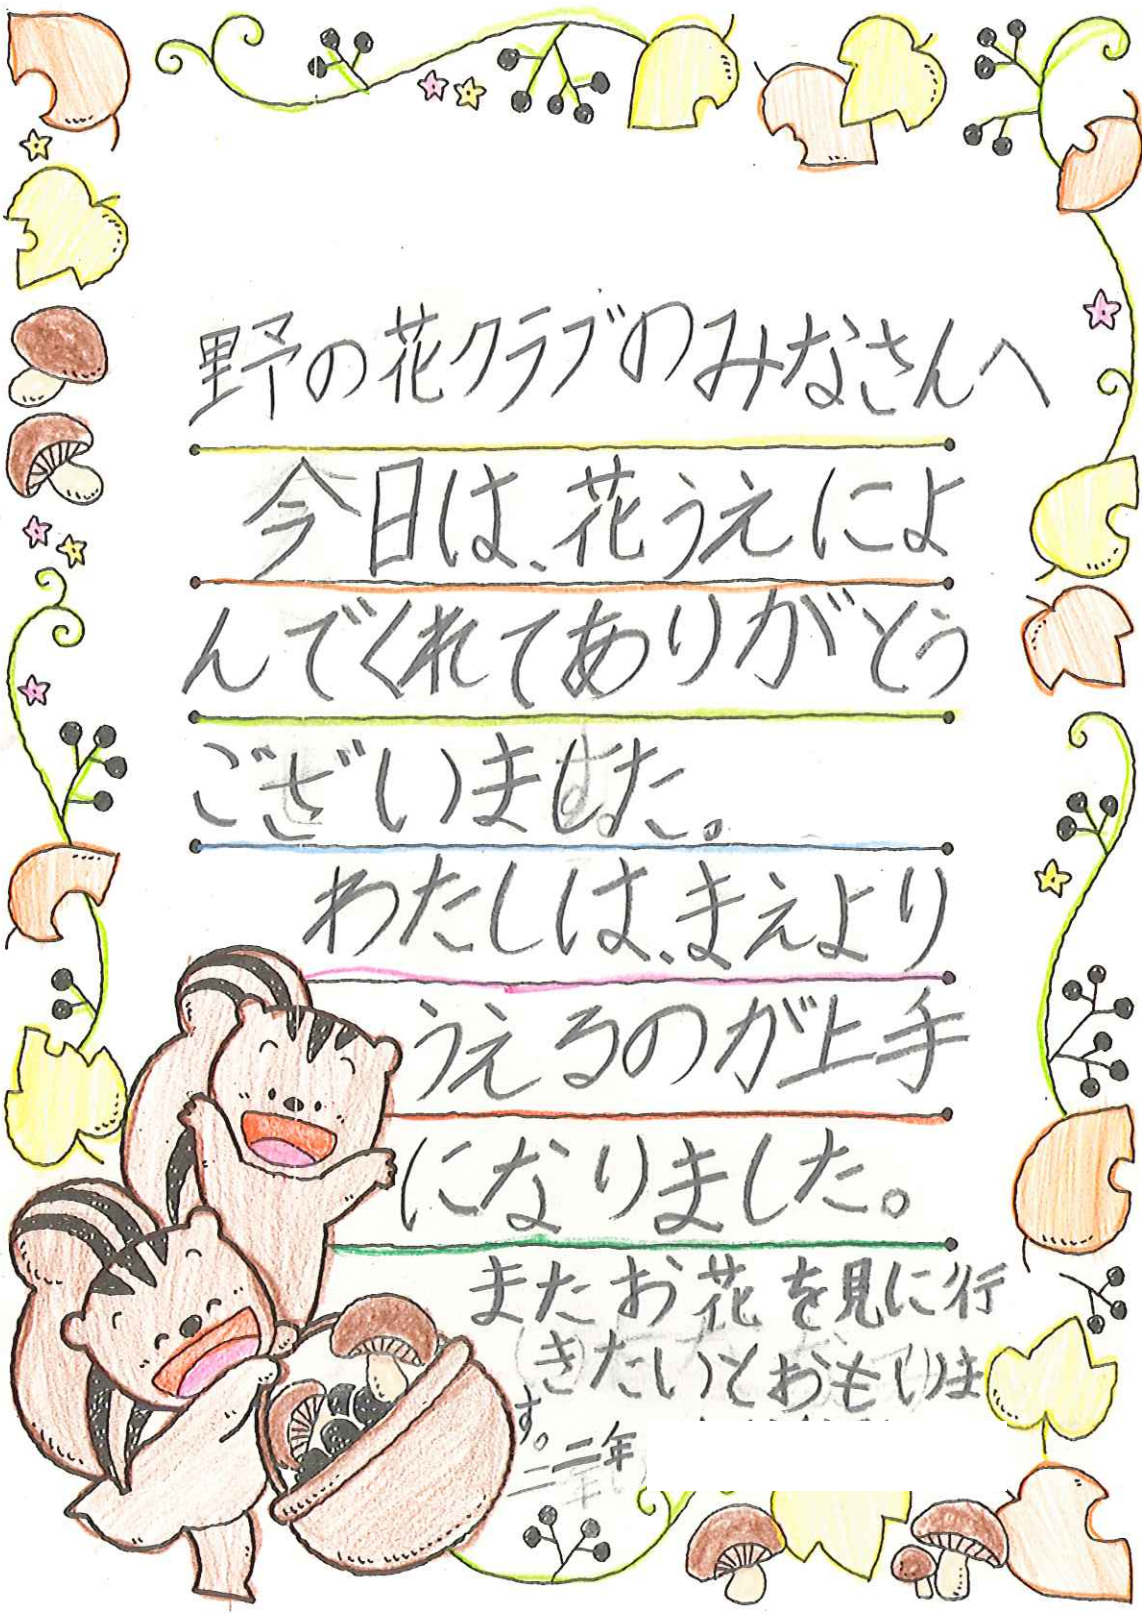 野の花クラブのみなさんへ
今日は、花うえによ
んでくれてありがとう
ございました。
わたしは、まえより
うえるのが上手
になりました。
またお花を見に行
きたいとおもいま
す。
二年